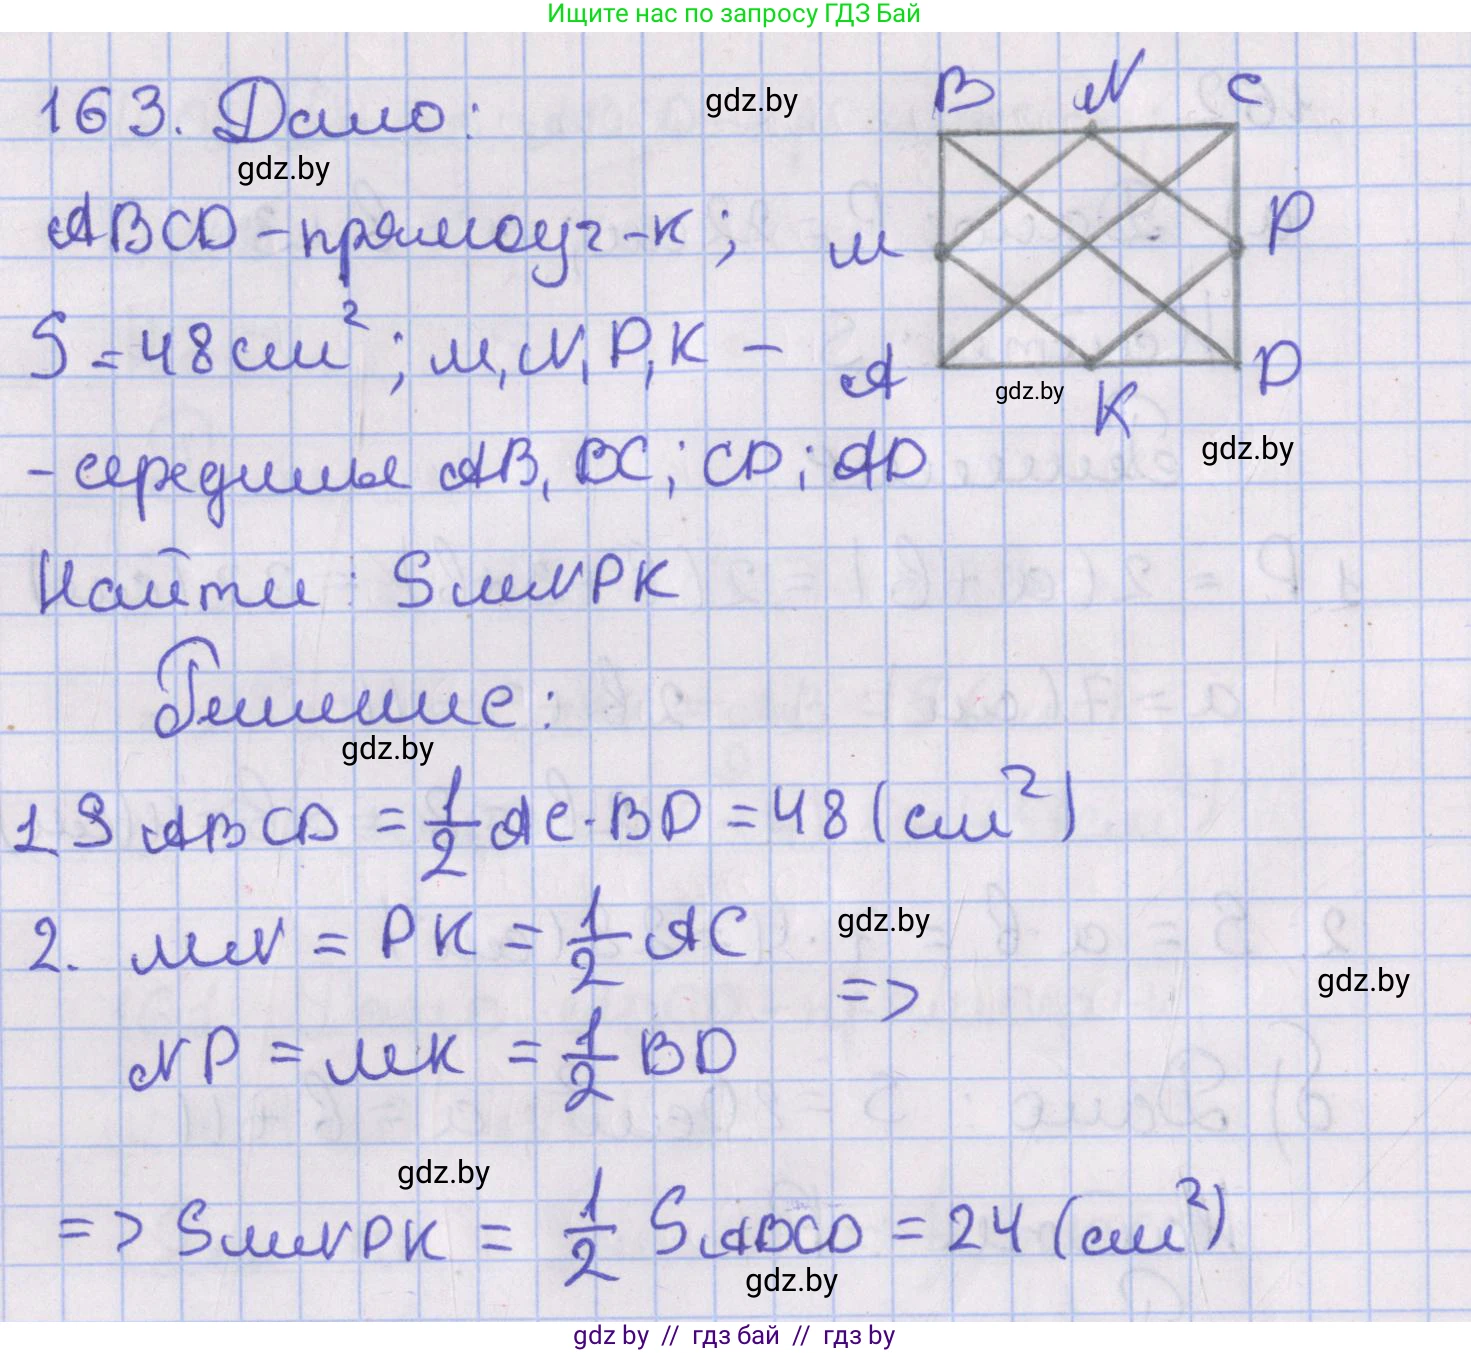 Ищите нас по запросу ГДЗ Бай
163. Дано:
gdz.by
gdz.by
B N C
ABCD - прямоуг-к;
M P
S = 48 см²; M, N, P, K -
A D
gdz.by
K
gdz.by
- середины AB, BC; CD; AD
Найти: S MNPK
Решение:
gdz.by
1 S ABCD = 1/2 AC · BD = 48 (см²)
2. MN = PK = 1/2 AC
gdz.by
=>
gdz.by
NP = MK = 1/2 BD
gdz.by
=> S MNPK = 1/2 S ABCD = 24 (см²)
gdz.by
gdz by // гдз бай // гдз by